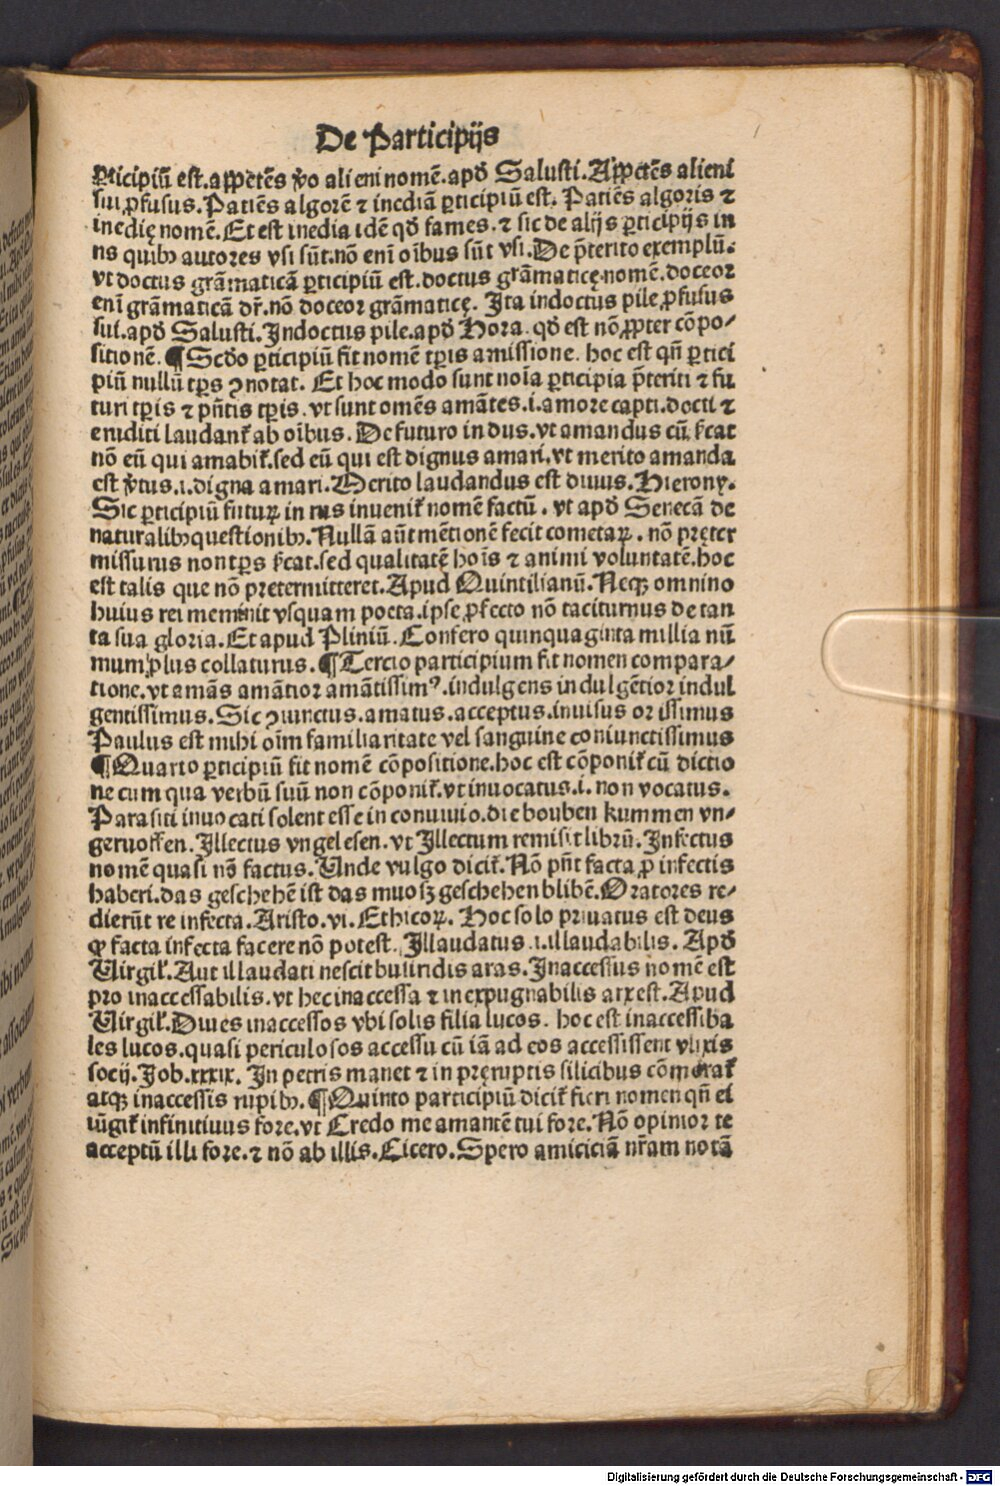 De Participijs
ꝑticipiū est.appetēs ꝟo alieni nomē.apđ Salusti.Appetēs alieni
sui ꝓfusus.Patiēs algorē ⁊ inediā ꝑticipiū est. Patiēs algoris ⁊
inedię nomē.Et est inedia idē qđ fames.⁊ sic de alijs ꝑticipijs in
ns quibꝰ autores vsi sūt.nō enī oībus sūt vsi.De p̄terito exemplū.
vt doctus grāmaticā ꝑticipiū est.doctus grāmaticę nomē.doceor
enī grāmaticā dr̄.nō doceor grāmaticę. Ita indoctus pile ꝓfusus
sui.apđ Salusti.Indoctus pile.apđ Hora. qđ est nō ꝓpter cōpo-
sitionē.¶Scđo ꝑticipiū fit nomē tꝑis amissione. hoc est qn̄ ꝑtici
piū nullū tꝑs ꝯnotat. Et hoc modo sunt noīa ꝑticipia p̄teriti ⁊ fu
turi tꝑis ⁊ pn̄tis tꝑis.vt sunt omēs amātes.i.amore capti.docti ⁊
eruditi laudant᷑ ab oībus.De futuro in dus.vt amandus cū ſc̄at
nō eū qui amabit᷑.sed eū qui est dignus amari.vt merito amanda
est ꝟtus.i.digna amari.Merito laudandus est diuus.Hierony.
Sic ꝑticipiū futuꝝ in rus inuenit᷑ nomē factū . vt apđ Senecā de
naturalibꝰ questionibꝰ.Nullā aūt mētionē fecit cometaꝝ. nō pręter
missurus non tꝑs ſc̄at.sed qualitatē hoīs ⁊ animi voluntatē.hoc
est talis que nō pretermitteret.Apud Quintilianū.Neqꝫ omnino
huius rei meminit vsquam poeta.ipse ꝓfecto nō taciturnus de tan
ta sua gloria.Et apud Pliniū.Confero quinquaginta millia nū
mum.plus collaturus.¶Tercio participium fit nomen compara-
tione.vt amās amātior amātissimꝰ.indulgens indulgētior indul
gentissimus.Sic ꝯiunctus.amatus.acceptus.inuisus or issimus
Paulus est mihi oīm familiaritate vel sanguine coniunctissimus
¶Quarto ꝑticipiū fit nomē cōpositione.hoc est cōponit᷑ cū dictio
ne cum qua verbū suū non cōponit᷑.vt inuocatus.i.non vocatus.
Parasiti inuocati solent esse in conuiuio.die bouben kummen vn-
geruoffen.Illectus vngelesen.vt Illectum remisit librū.Infectus
nomē quasi nō factus.Unde vulgo dicit᷑.Nō pn̄t facta ꝓ infectis
haberi.das geschehē ist das muosz geschehen blibē.Oratores re-
dierūt re infecta.Aristo.vi.Ethicoꝝ. Hoc solo priuatus est deus
ꝙ facta infecta facere nō potest. Illaudatus.i.illaudabilis. Apđ
Uirgil᷑.Aut illaudati nescit busiridis aras.Inaccessus nomē est
pro inaccessabilis.vt hec inaccessa ⁊ inexpugnabilis arx est.Apud
Uirgil᷑.Diues inaccessos vbi solis filia lucos. hoc est inaccessiba
les lucos.quasi periculosos accessu cū iā ad eos accessissent vlixis
socij.Job.xxxix. In petris manet ⁊ in pręruptis silicibus cōmorat᷑
atqꝫ inaccessis rupibꝰ.¶Quinto participiū dicit᷑ fieri nomen qn̄ ei
iūgit᷑ infinitiuus fore.vt Credo me amantē tui fore.Nō opinior te
acceptū illi fore.⁊ nō ab illis.Cicero.Spero amiciciā nr̄am notā
Digitalisierung gefördert durch die Deutsche Forschungsgemeinschaft - DFG